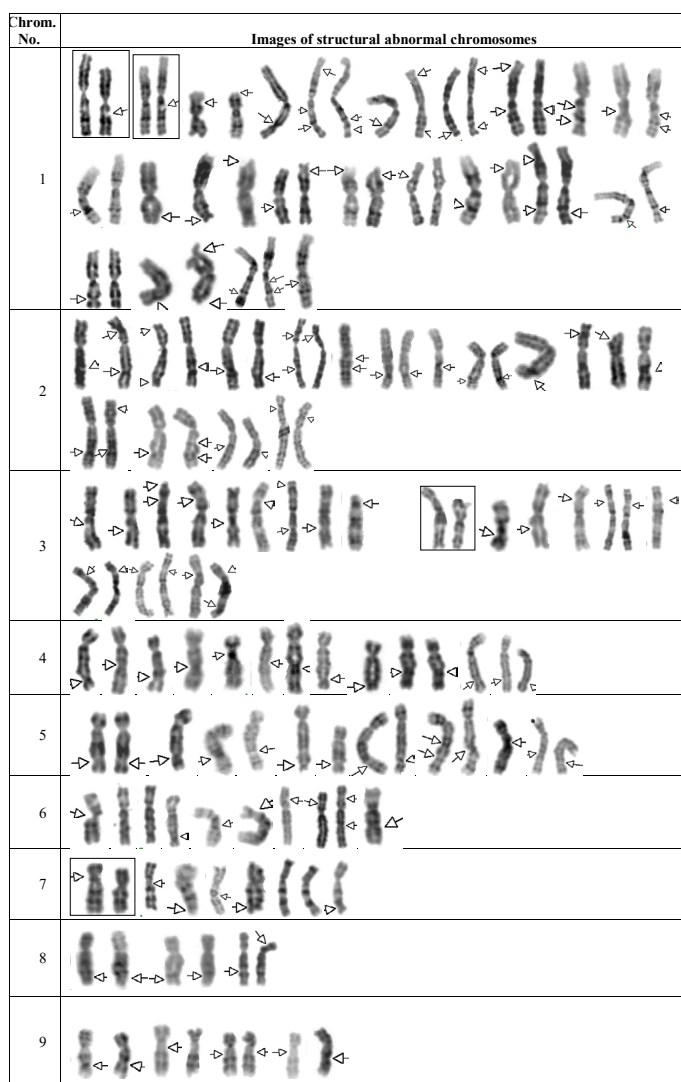 Chrom.
No.
Images of structural abnormal chromosomes
1
2
3
4
5
6
7
8
9